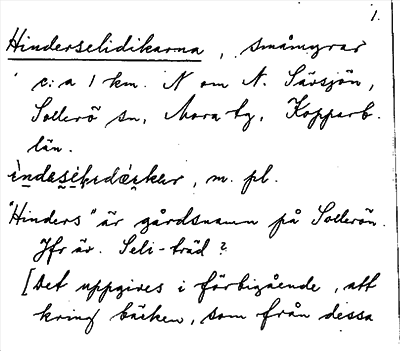 1.
Hinderselidikarna, småmyrar
c:a 1 km. N om N. Särsjön,
Sollerö sn, Mora tg, Kopparb.
län.
m. pl.
"Hinders" är gårdsnamn på Sollerön.
Jfr äv. Seli-träd?
[Det uppgives i förbigående, att
kring bäcken, som från dessa